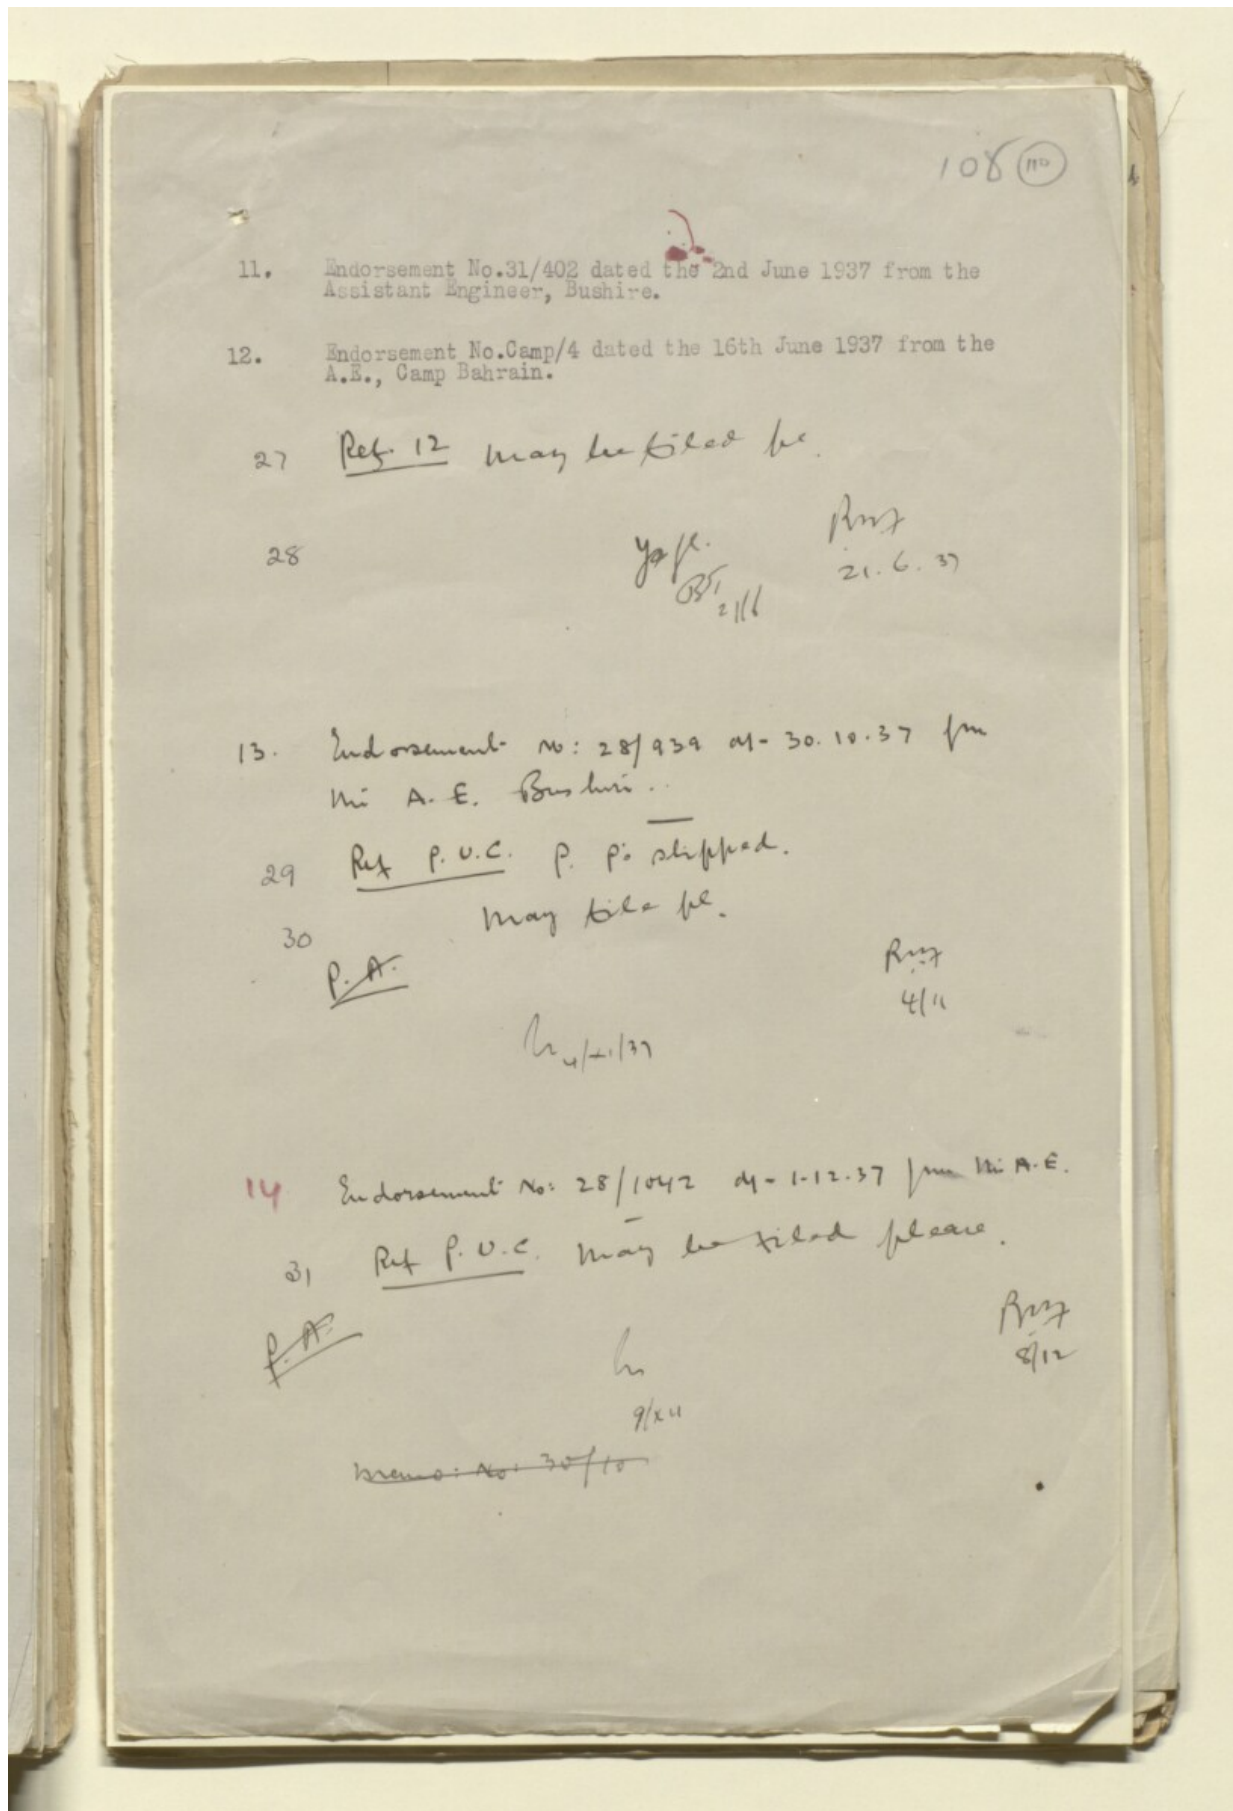 108 110
11. Endorsement No.31/402 dated the 2nd June 1937 from the
Assistant Engineer, Bushire.
12. Endorsement No.Camp/4 dated the 16th June 1937 from the
A.E., Camp Bahrain.
27 Ref. 12 may be filed pl.
28
21.6.37
21/6
13. Endorsement No: 28/939 d/- 30.10.37 from
the A.E. Bushire.
29 Ref P.U.C. P. P. slipped.
30 May file pl.
P.A.
4/11
4/XI/37
14 Endorsement No: 28/1042 d/- 1-12-37 from the A.E.
31 Ref P.U.C. May be filed please.
P.A.
8/12
9/XII
Memo: No: 30/10